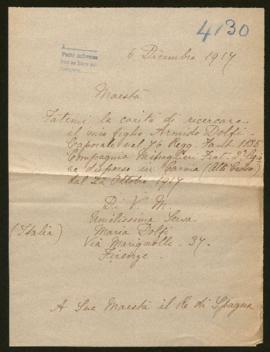 4130
6 Dicembre 1917
Maestà
Fatemi la carità di ricercare
il mio figlio Armido Dolfi
Caporale nel 76 Regg. Fant. 1835
Compagnia Mitraglieri Fiat
disperso in Carnia
dal 24 Ottobre 1917
Di V. M.
Umilissima Serva
Maria Dolfi
Via Marignolle. 37.
Firenze.
(Italia)
A Sua Maestà il Re di Spagna